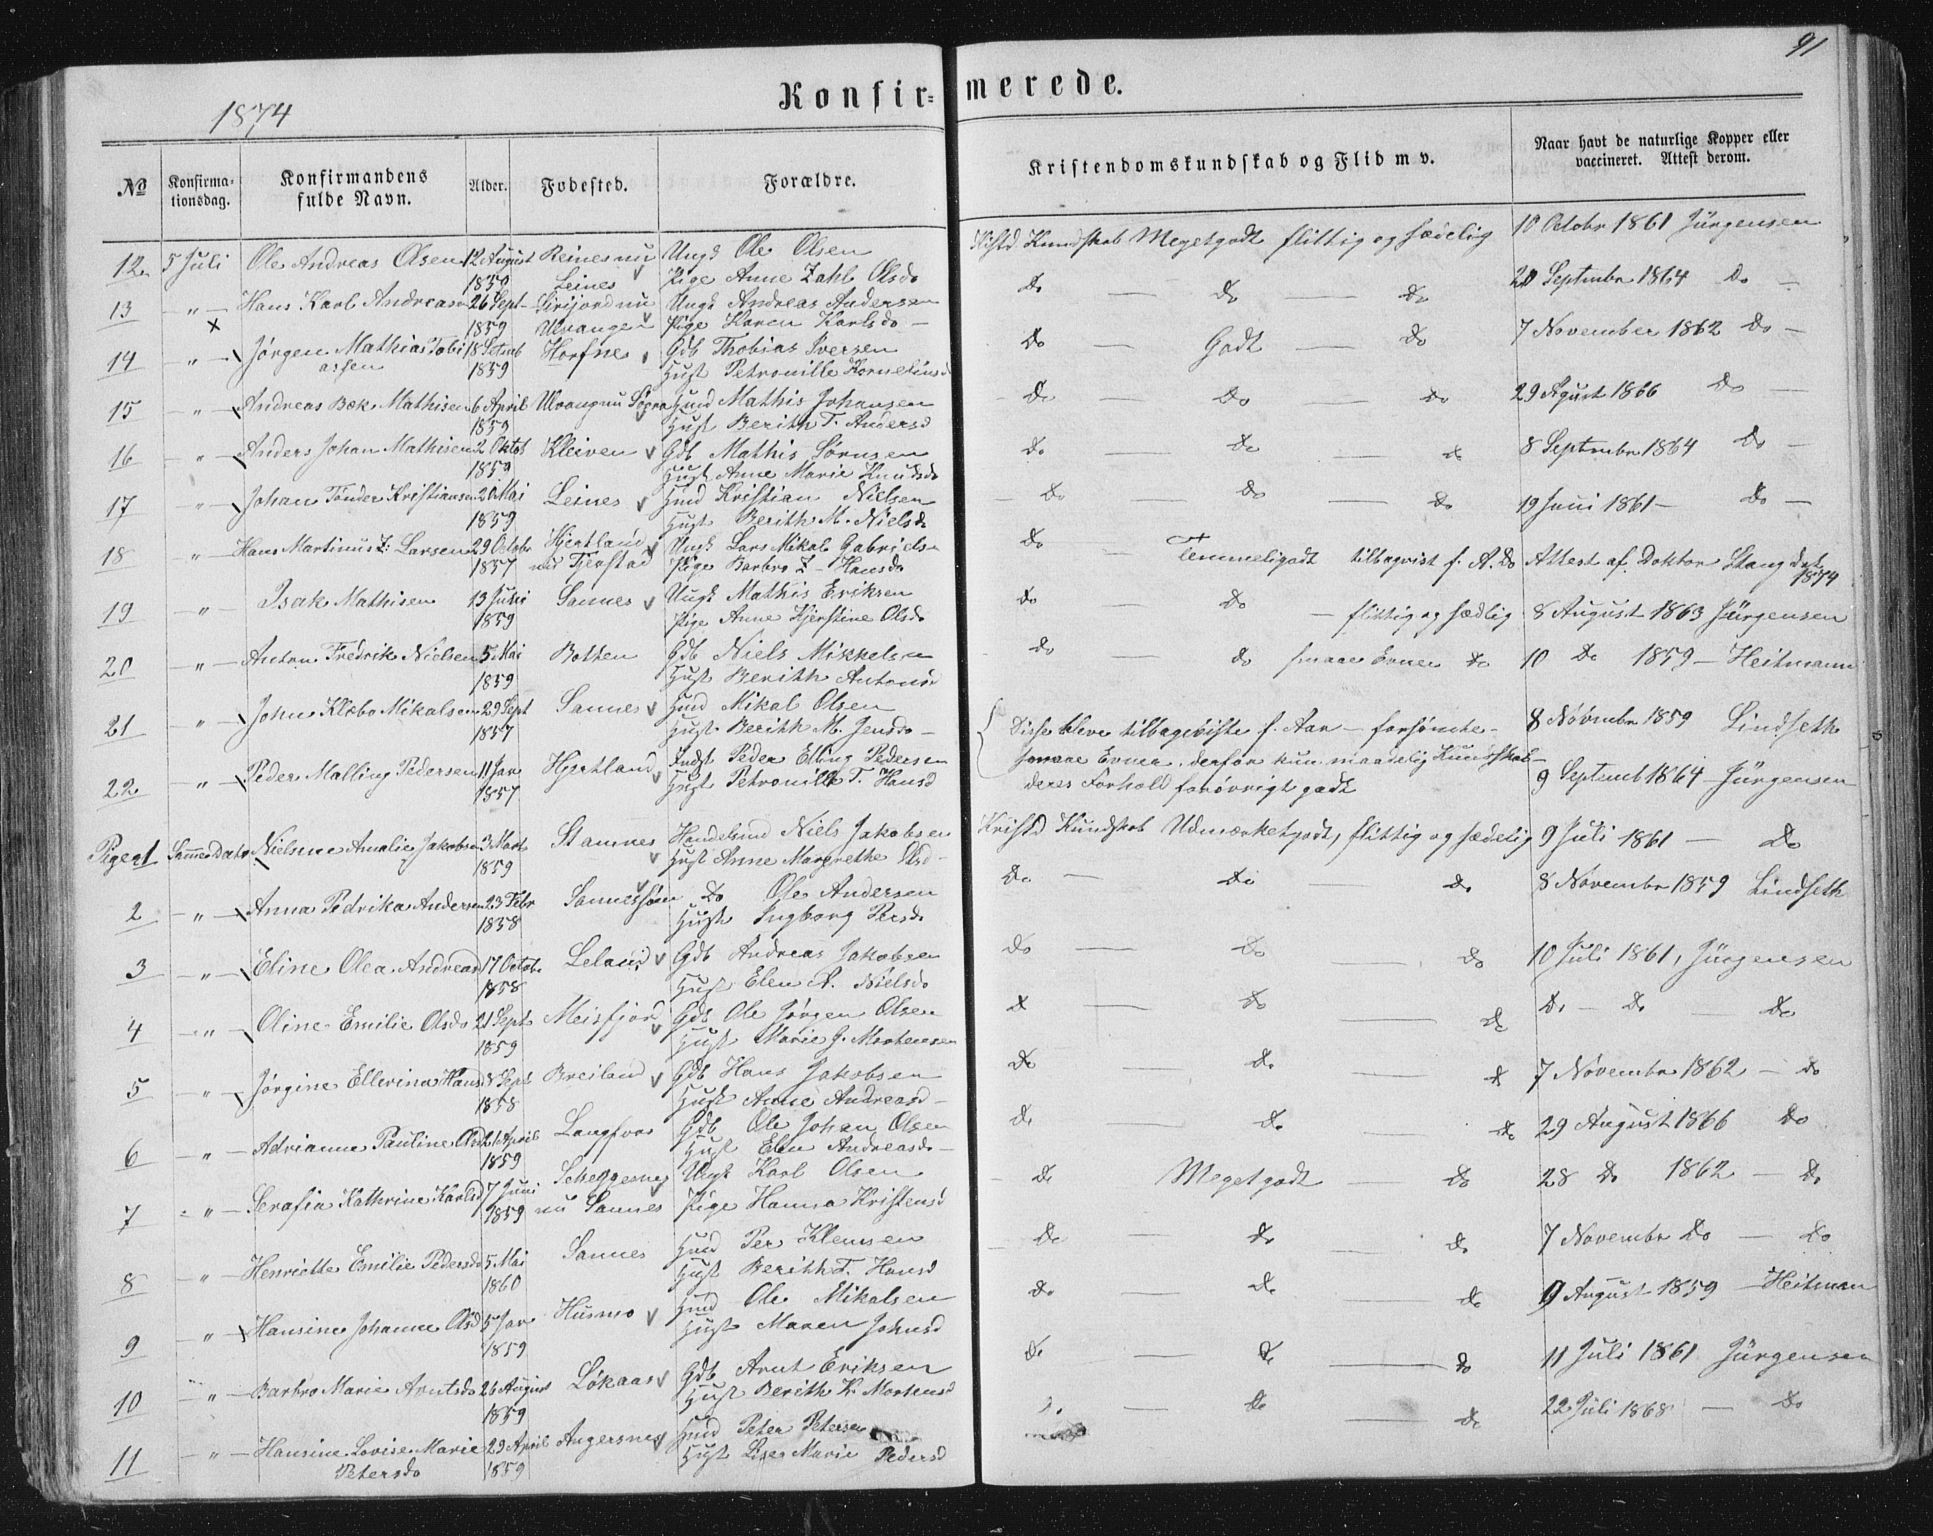 91
1874
Konfir-merede.
No
Konfirma-tionsdag.
Konfirmandens fulde Navn.
Alder.
Fødested.
Forældre.
Kristendomskundskab og Flid m v.
Naar havt de naturlige Kopper eller vaccineret. Attest derom.
12 5 Juli Ole Andreas Olsen 12 August 1859 Reines nu Leines Ungk Ole Olsen Pige Anne Zahl Olsdo Kundskab Megetgodt flittig og sædelig 10 Octobr 1861 Jürgensen
13 " Hans Karl Andreasen 26 Sept 1859 Ulvangen Ungk Andreas Andersen Pige Karen Karlsdo Do Do Do 20 Septembr 1864 Do
14 " Jørgen Mathias Tobiassen 18 Septmb 1859 Gdb Thobias Iversen Hust Petronille Korneliusd Do Godt Do 7 November 1862 Do
15 " Andreas Bæk Mathisen 6 April 1859 Ulvang nu Hmd Mathis Johansen Hust Berith T. Andersd Do Do Do 29 Agust 1866 Do
16 " Anders Johan Mathisen 2 Oktob 1859 Kleiven Gdb Mathis Sørnsen Hust Anne Marie Knudsdo Do Do Do 8 Septembr 1864 Do
17 " Johan Tønder Kristiansen 20 Mai 1859 Leines Hmd Kristian Nielsen Hust Berith M. Nielsd Do Do Do 19 Juni 1861 Do
18 " Hans Martinus Z. Larsen 29 Octobr 1857 Hjertland nu Tjerstad Ungk Lars Mikal Gabrielsn Pige Barbro Z. Hansdo Do Temmeligodt tilbagvist f. A. Do Attest af Doktor Stang dat 1874
19 " Isak Mathisen 13 Juni 1859 Sannes Ungk Mathis Eriksen Pige Anne Kjerstine Olsdo Do Do flittig og sædlig 8 August 1863 Jürgensen
20 " Anton Fredrik Nielsen 5 Mai 1859 Botten Gdb Niels Mikkelsen Hust Berith Antonsd Do Do smaae Evner Do 10 Do 1859 Heitmann
21 " John Klæbo Mikalsen 29 Sept 1857 Sannes Hmd Mikal Olsen Hust Berith M. Jensdo Disse bleve tilbageviste f. Aar - forsømte - 8 Novmbr 1859 Lindseth
22 " Peder Malling Pedersen 11 Jan 1857 Hjertland Indst Peder Elling Pedersen Hust Petronille T. Hansd smaae Evner, derfor kun maadelig Kundskab - deres Forhold forøvrigt godt 9 Septemb 1864 Jürgensen
Piger 1 Samme Dato Nielsine Amalie Jakobsn 3 Marts 1859 Stamnes Handelsmd Niels Jakobsen Hust Anne Margrethe Olsd Kristd Kundskab Udmærketgodt, flittig og sædelig 9 Juli 1861 Do
2 " Anna Pedrika Andersn 23 Febr 1858 Sannessjøen Do Ole Andersen Hust Ingborg Persdo Do Do Do 8 Novembr 1859 Lindseth
3 " Eline Olea Andreasd 17 Octob 1858 Leland Gdb Andreas Jakobsen Hust Elen A. Nielsdo Do Do Do 10 Juli 1861, Jürgensen
4 " Oline Emilie Olsdo 21 Sept 1859 Meisfjord Gdb Ole Jørgen Olsen Hust Marie J. Mortensen Do Do Do Do Do Do
5 " Jørgine Ellerina Hansd 8 Sept 1858 Breiland Gdb Hans Jakobsen Hust Anne Andreasd Do Do Do 7 Novembr 1862 Do
6 " Adrianne Pauline Olsd 21 April 1859 Langfvar Gdb Ole Johan Olsen Hust Elen Andreasdo Do Do Do 29 August 1866 Do
7 " Serafia Kathrine Karlsd 7 Juni 1859 Skeggesnes nu Sannes Ungk Karl Olsen Pige Hanna Kristensd Do Megetgodt Do 28 Do 1862 Do
8 " Henriette Emilie Pedersdo 5 Mai 1860 Sannes Hmd Per Klemsen Hust Berith T. Hansd Do Do Do 7 Novembr Do Do
9 " Hansine Johanne Olsd 5 Jan 1859 Husmo Hmd Ole Mikalsen Hust Maren Johnsd Do Do Do 9 August 1859 Heitman
10 " Barbro Marie Arntsdo 26 August 1859 Løkaas Gdb Arnt Eriksen Hust Berith K. Mortensd Do Do Do 11 Juli 1861 Jürgensen
11 " Hansine Lovise Marie Petersdo 29 April 1859 Angersnes Hmd Peter Petersen Hust Lise Marie Pedersd Do Do 22 Juli 1868 Do